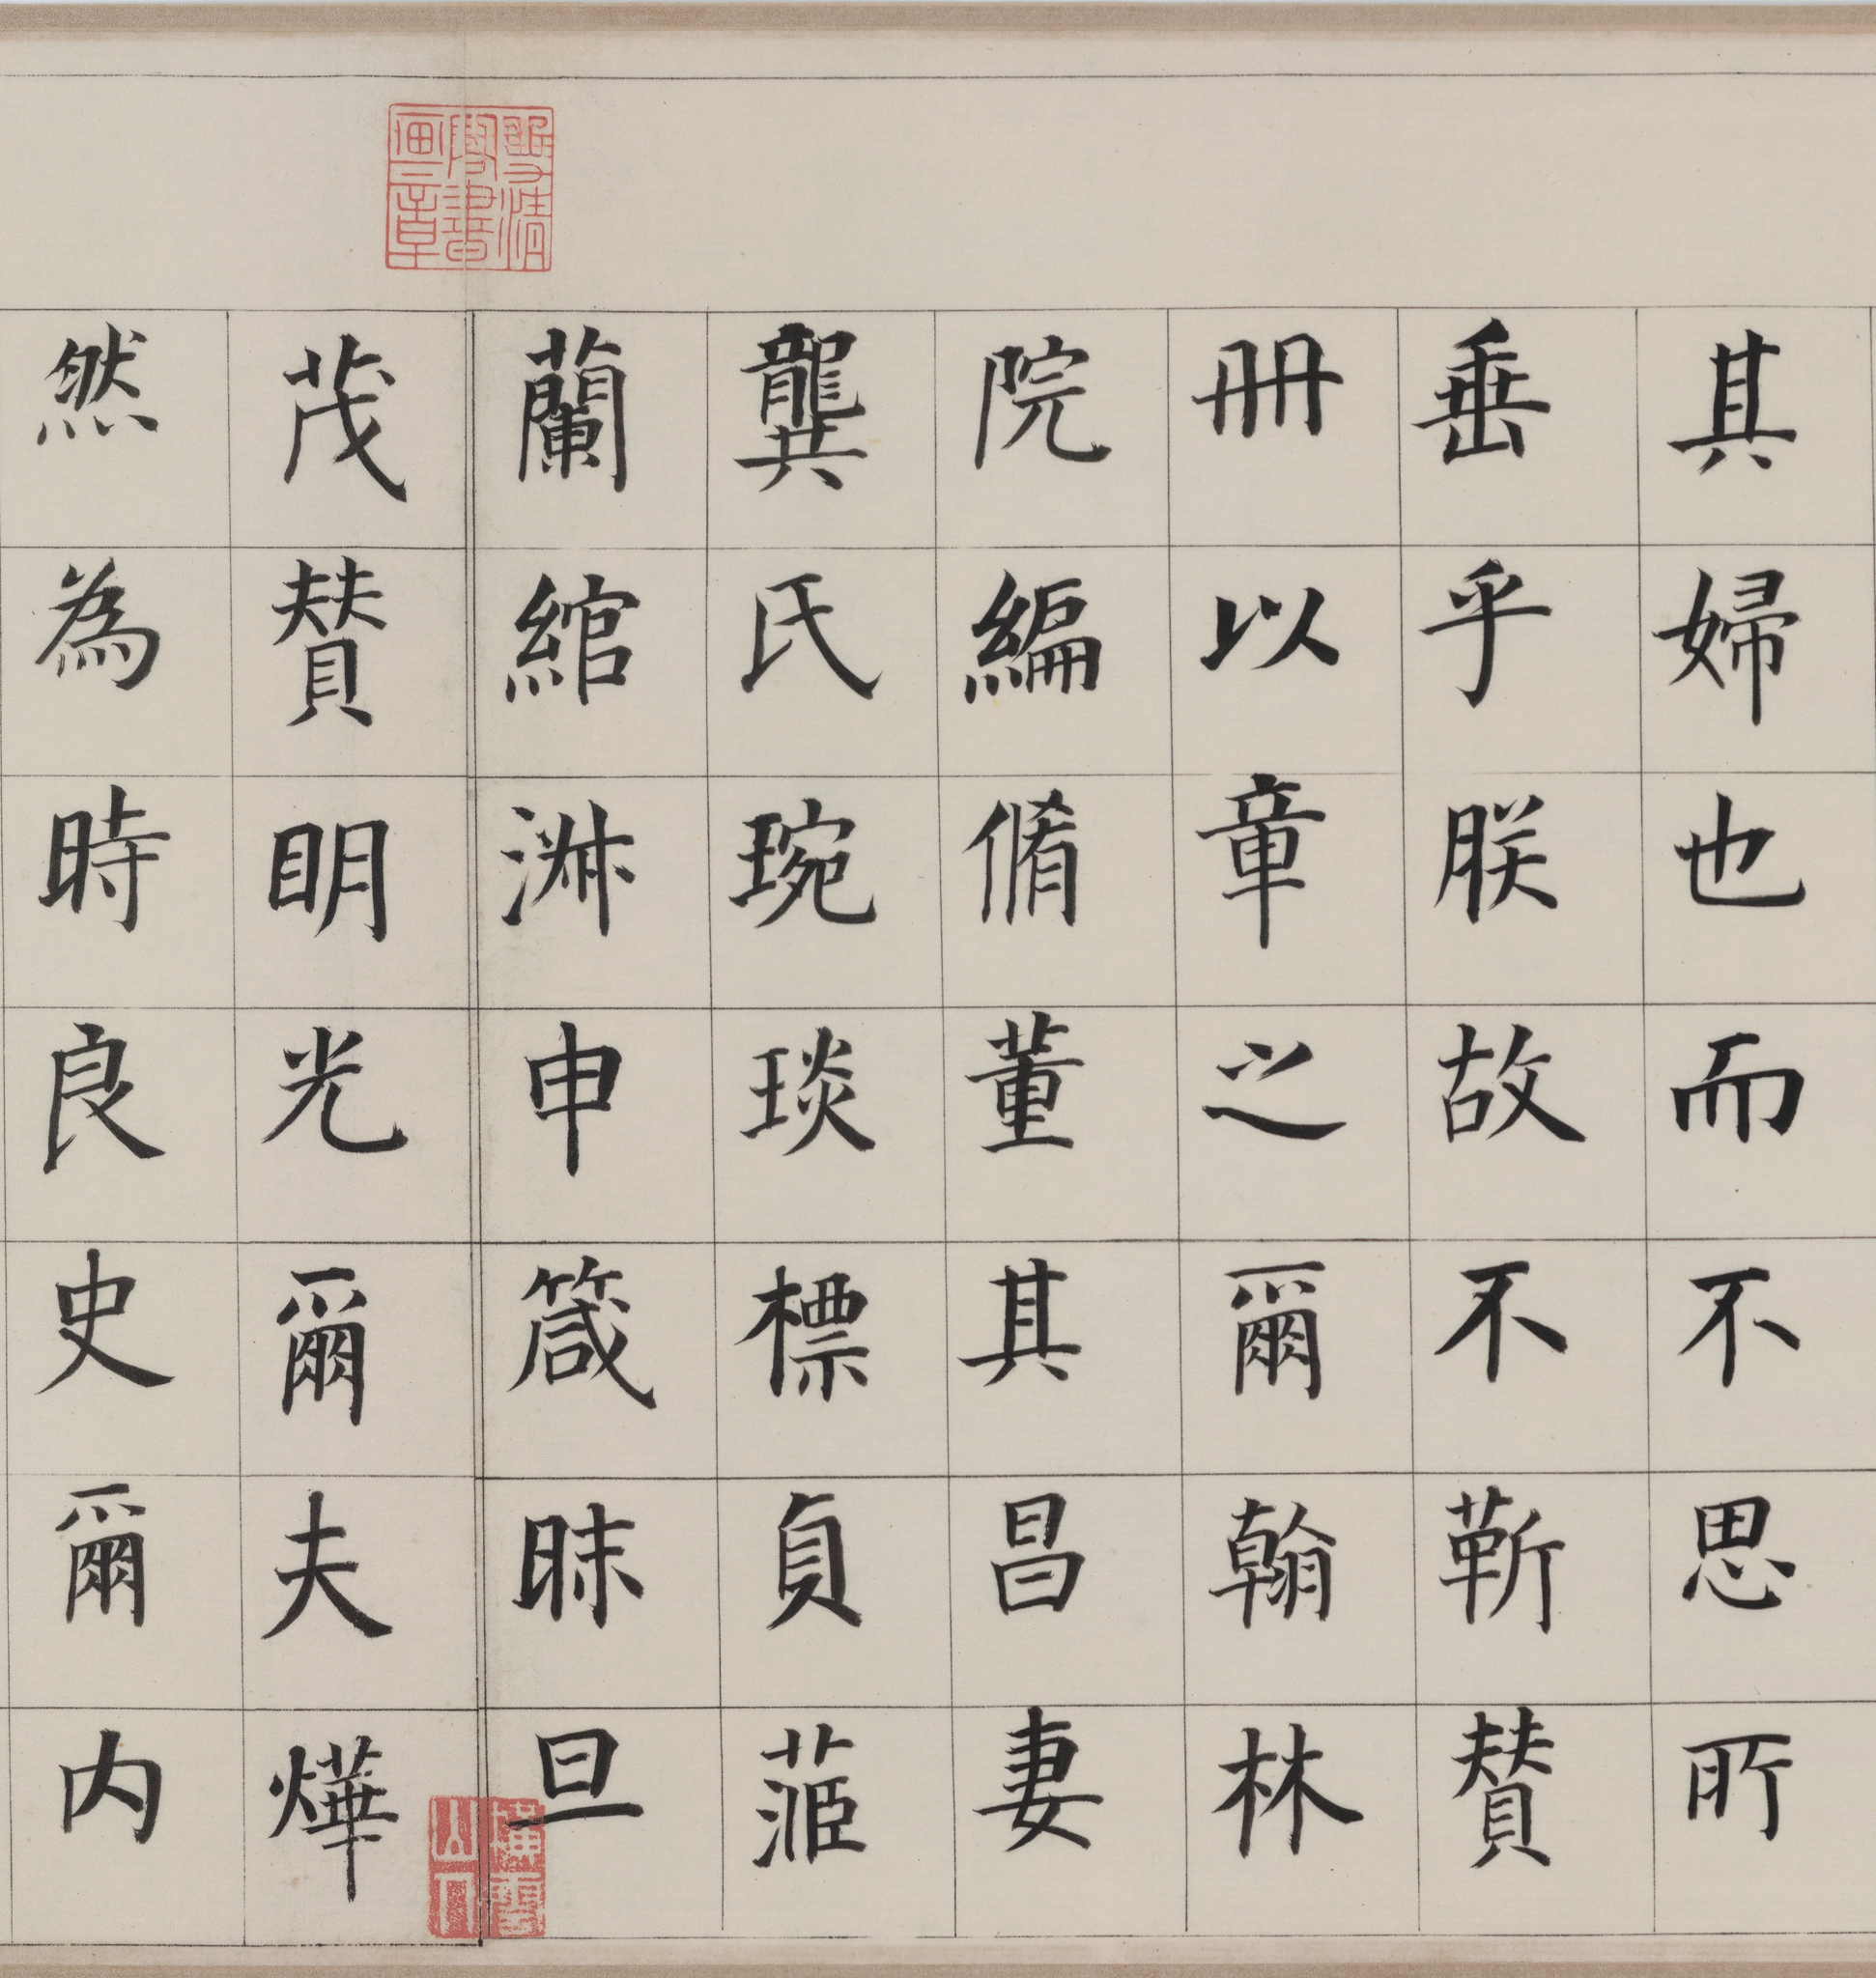 其婦也而不思所
垂乎朕故不靳賛
冊以章之爾翰林
院編脩董其昌妻
龔氏琬琰標貞茝
蘭綰淑申箴昧旦
茂賛明光爾夫燁
然為時良史爾内